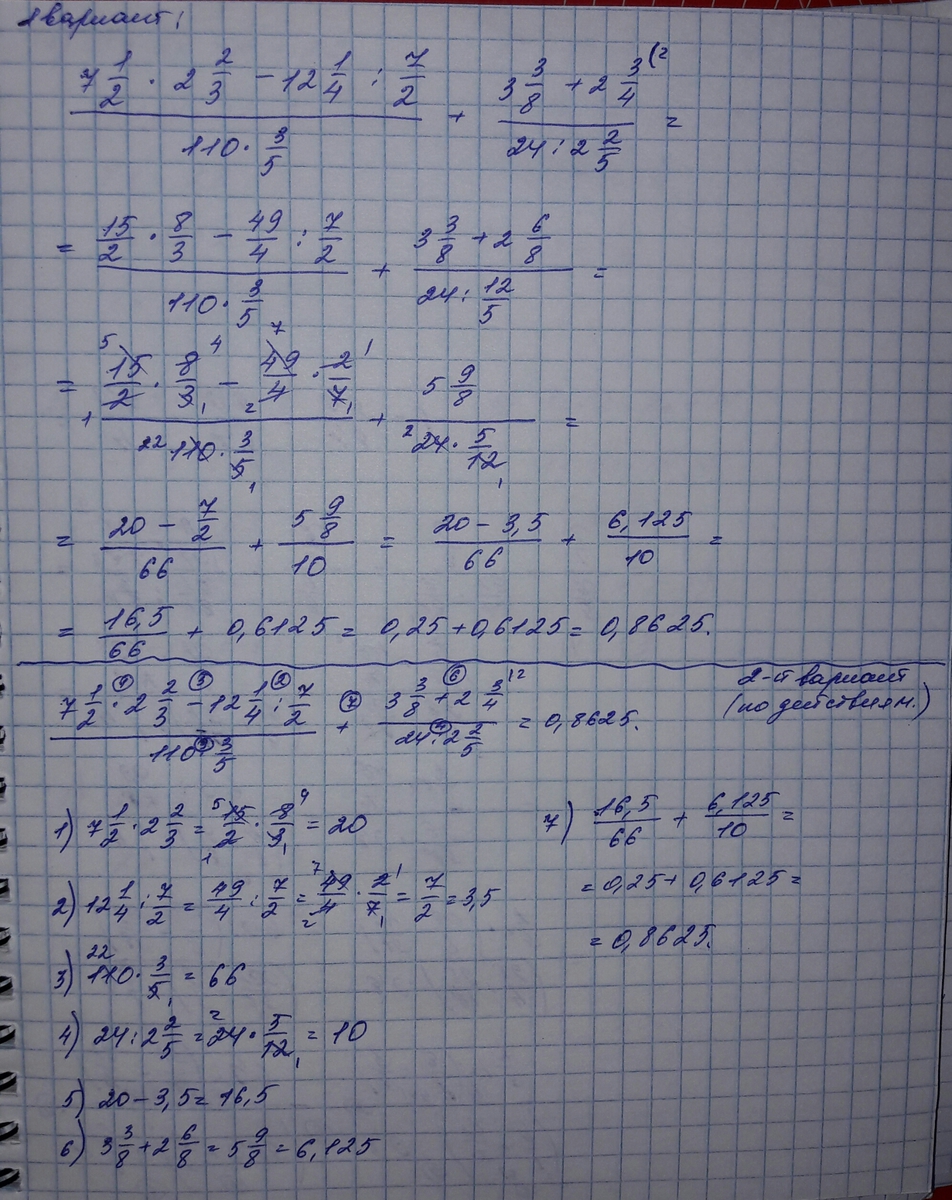 1 вариант:
(7 1/2 · 2 2/3 − 12 1/4 : 7/2)/(110 · 3/5) + (3 3/8 + 2 3/4 (2)/(24 : 2 2/5) =
= (15/2 · 8/3 − 49/4 : 7/2)/(110 · 3/5) + (3 3/8 + 2 6/8)/(24 : 12/5) =
= (15/2 · 8/3 − 49/4 · 2/7)/(110 · 3/5) + (5 9/8)/(24 · 5/12) =
= (20 − 7/2)/66 + (5 9/8)/10 = (20 − 3,5)/66 + 6,125/10 =
= 16,5/66 + 0,6125 = 0,25 + 0,6125 = 0,8625.
2-й вариант
(по действиям.)
(7 1/2 · 2 2/3 − 12 1/4 : 7/2)/(110 · 3/5) + (3 3/8 + 2 3/4 (2)/(24 : 2 2/5) = 0,8625.
1) 7 1/2 · 2 2/3 = 15/2 · 8/3 = 20
2) 12 1/4 : 7/2 = 49/4 : 7/2 = 49/4 · 2/7 = 7/2 = 3,5
3) 110 · 3/5 = 66
4) 24 : 2 2/5 = 24 · 5/12 = 10
5) 20 − 3,5 = 16,5
6) 3 3/8 + 2 6/8 = 5 9/8 = 6,125
7) 16,5/66 + 6,125/10 =
= 0,25 + 0,6125 =
= 0,8625.